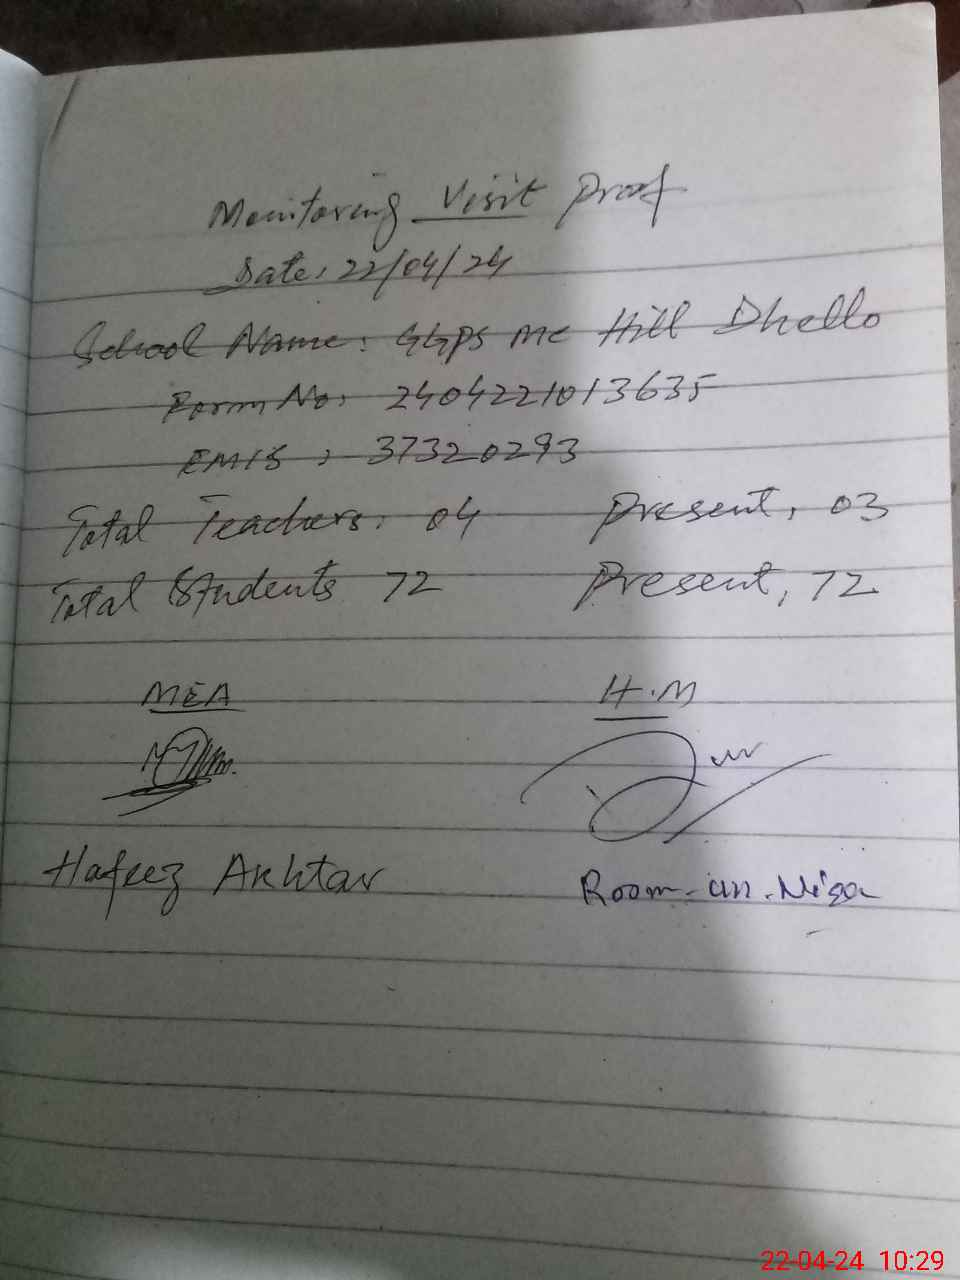 Monitoring Visit Proof
Date: 22/04/24
School Name: GGPS MC Hill Dhello
Form No: 2404221013635
EMIS : 37320293
Total Teachers: 04 Present, 03
Total Students 72 Present, 72
MEA H.M
Hafeez Akhtar Room-un-Nisa
22-04-24 10:29